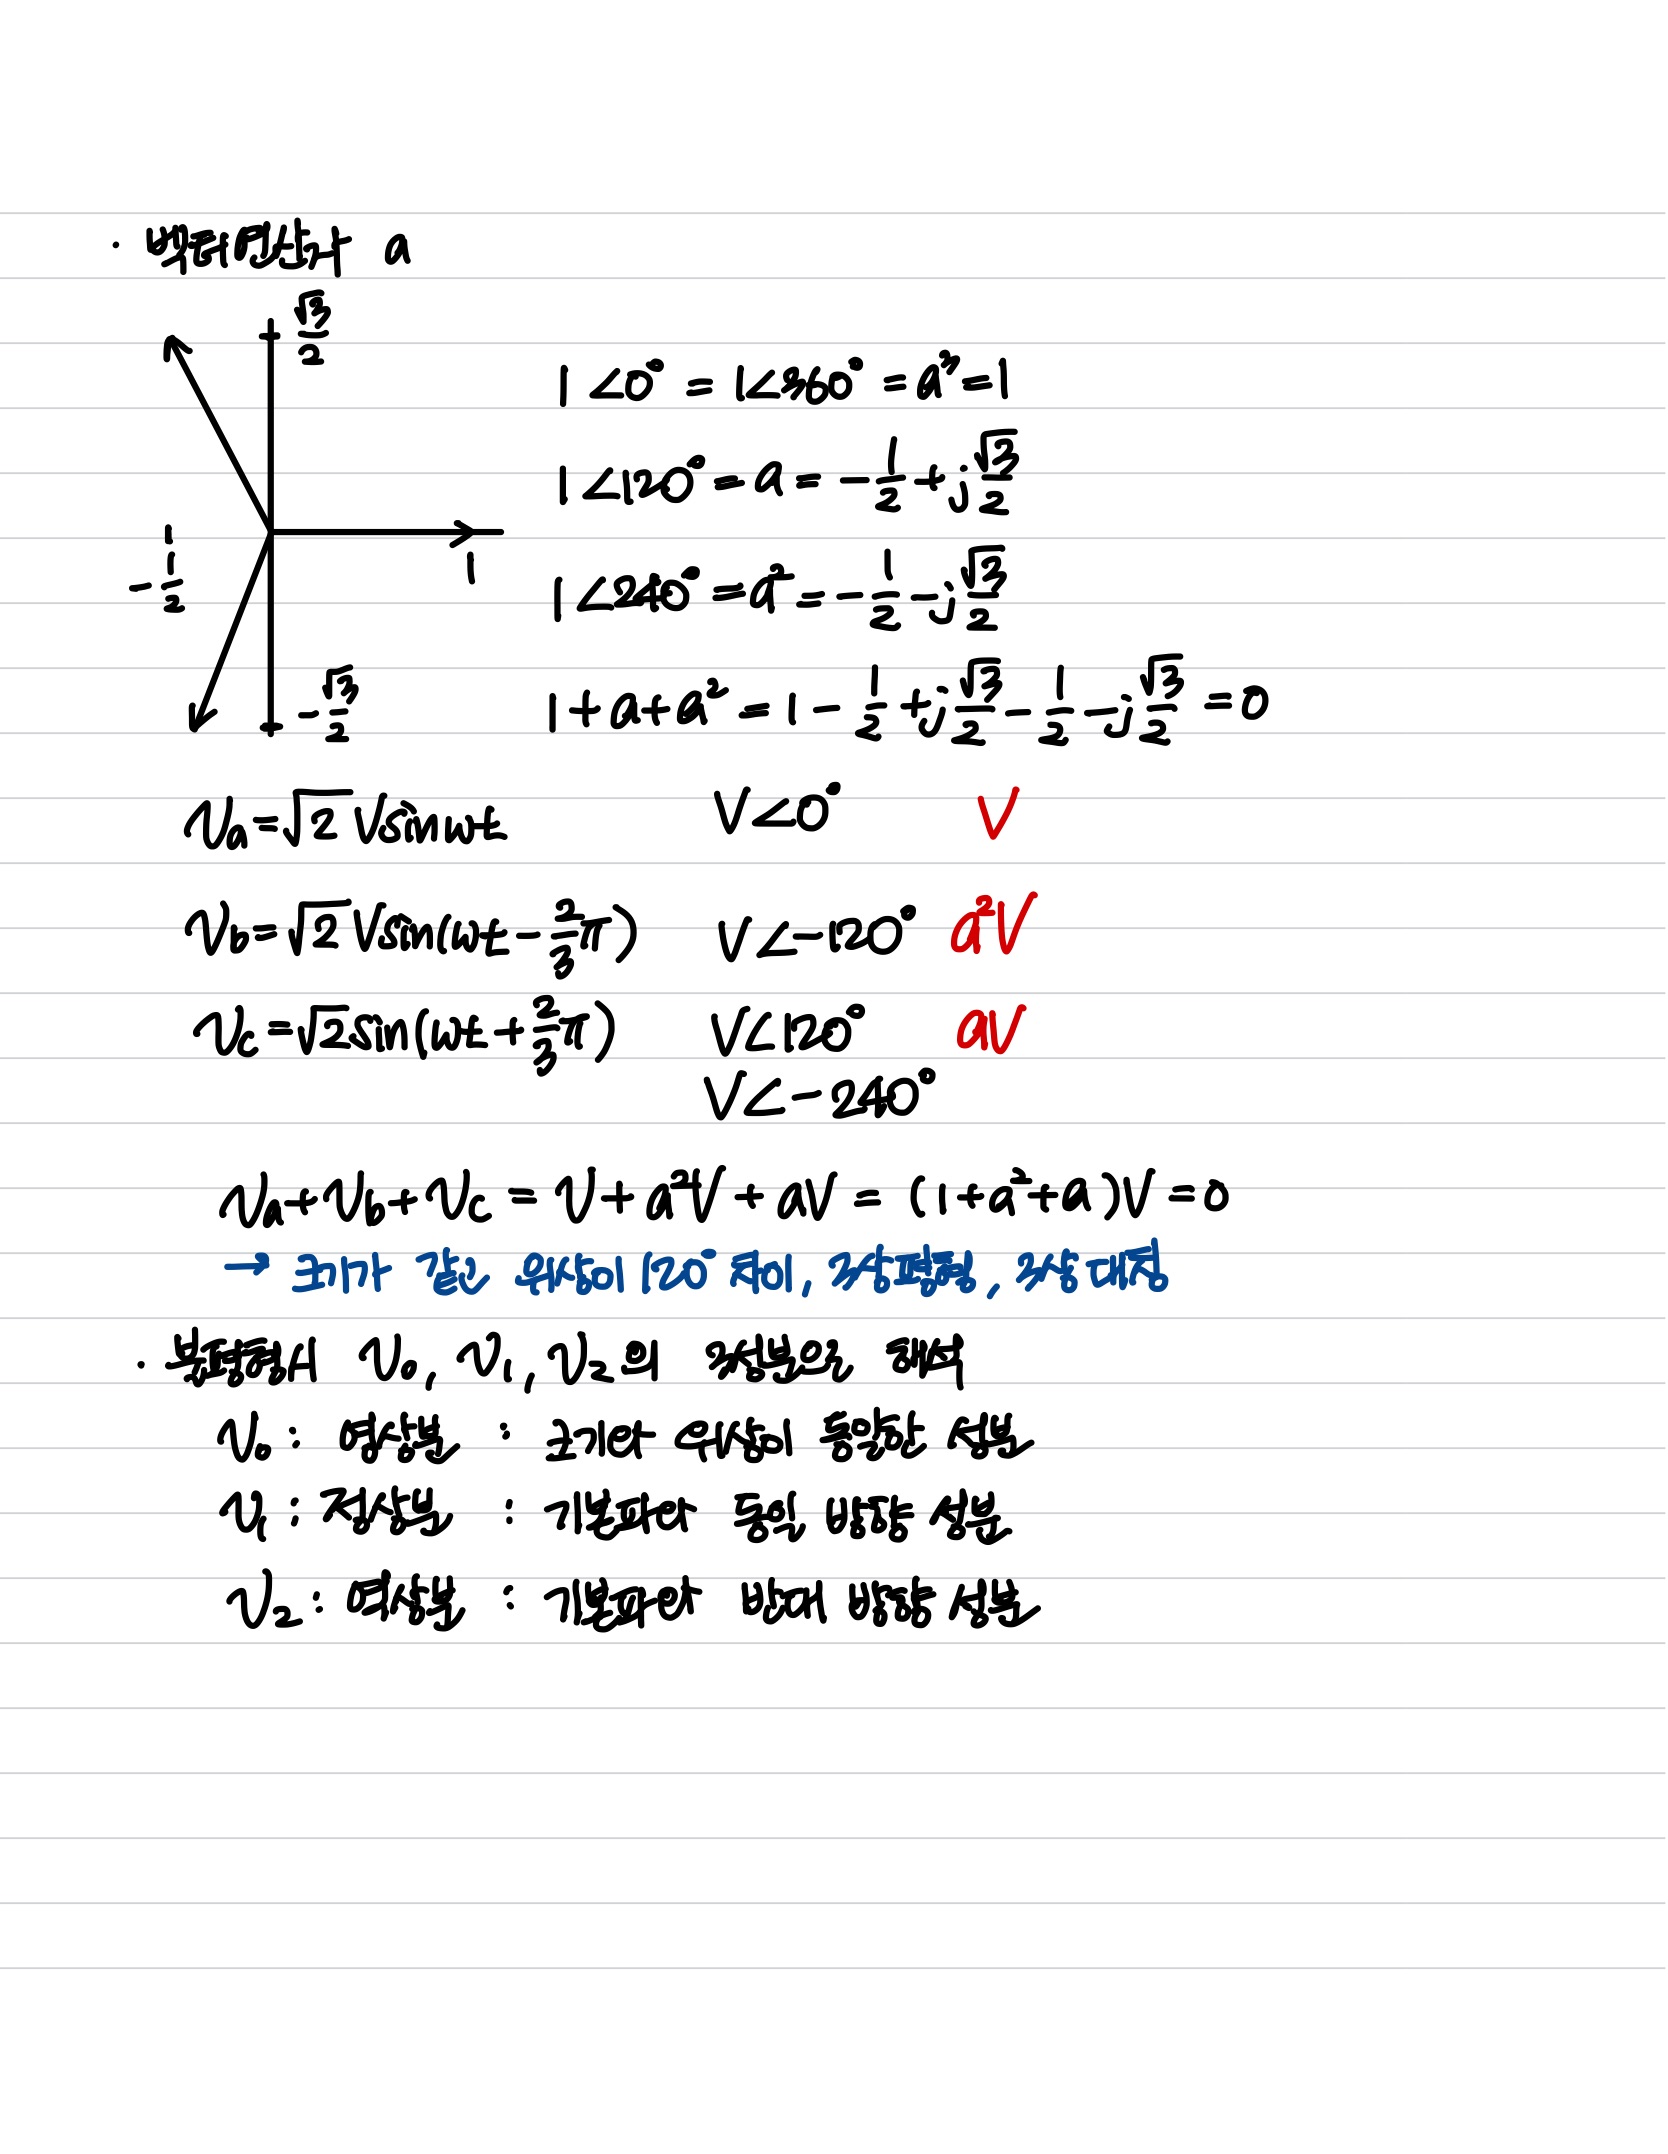 · 벡터연산자 a
√3/2
1∠0° = 1∠360° = a³ = 1
1∠120° = a = -1/2 + j√3/2
-1/2
1
1∠240° = a² = -1/2 - j√3/2
-√3/2
1 + a + a² = 1 - 1/2 + j√3/2 - 1/2 - j√3/2 = 0
Va = √2 Vsinwt V∠0° V
Vb = √2 Vsin(wt - 2/3π) V∠-120° a²V
Vc = √2 sin(wt + 2/3π) V∠120° aV
V∠-240°
Va + Vb + Vc = V + a²V + aV = (1 + a² + a)V = 0
→ 크기가 같고 위상이 120° 차이, 3상평형, 3상대칭
· 불평형시 V₀, V₁, V₂의 3성분으로 해석
V₀ : 영상분 : 크기와 위상이 동일한 성분
V₁ : 정상분 : 기본파와 동일 방향 성분
V₂ : 역상분 : 기본파와 반대 방향 성분